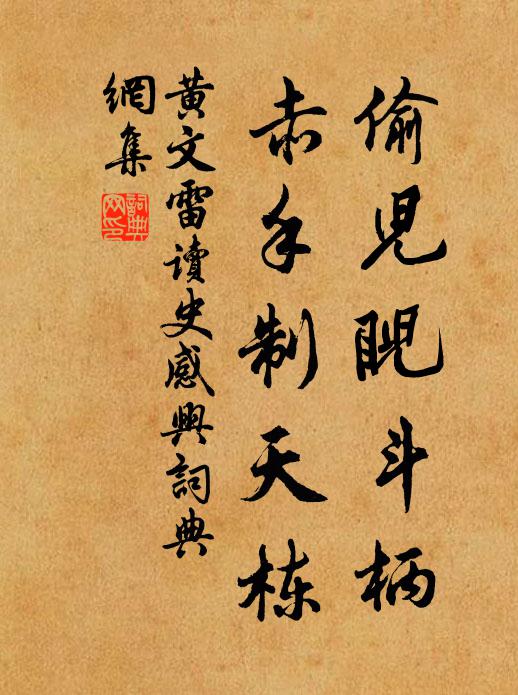 偷児睨斗柄
赤手制天栋
黄文雷讀史感興詞典
網集
詞典
网印